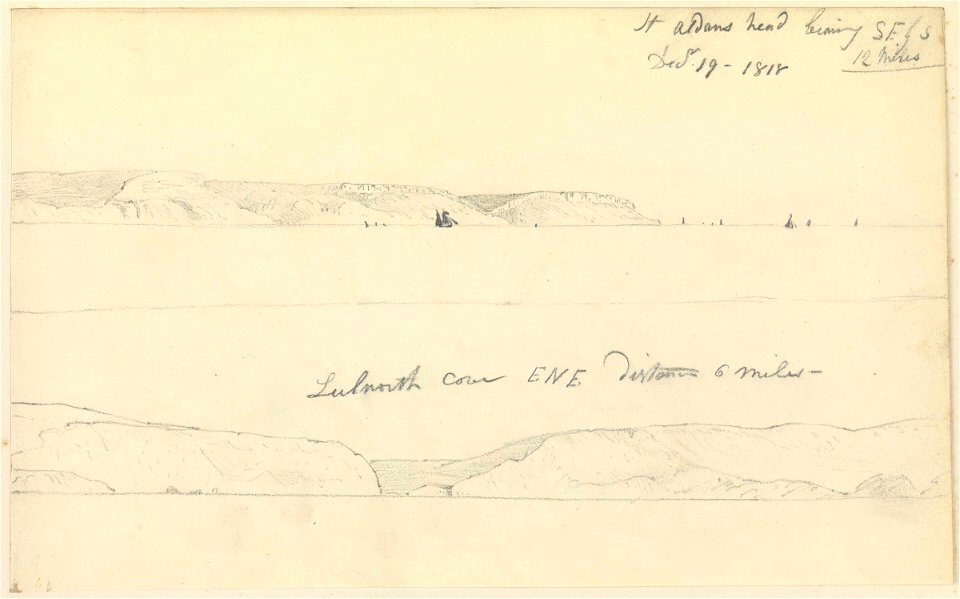 St aldans head bearing SE by S
12 Miles
Decr. 19 - 1818
Lulworth Cove ENE. Distance 6 miles -